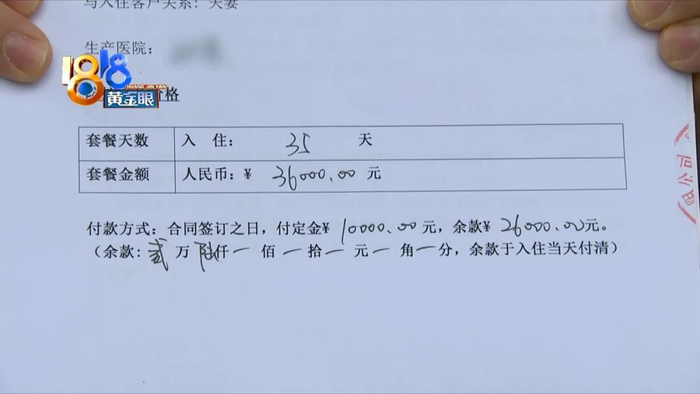 与入住客户关系：夫妻
生产医院：
1818
黄金眼
价格
套餐天数 入 住： 35 天
套餐金额 人民币：¥ 36000.00 元
付款方式：合同签订之日，付定金¥ 10000.00 元，余款¥ 26000.00元。
（余款：贰 万 陆仟一 佰 一 拾一 元 一 角 一 分，余款于入住当天付清）